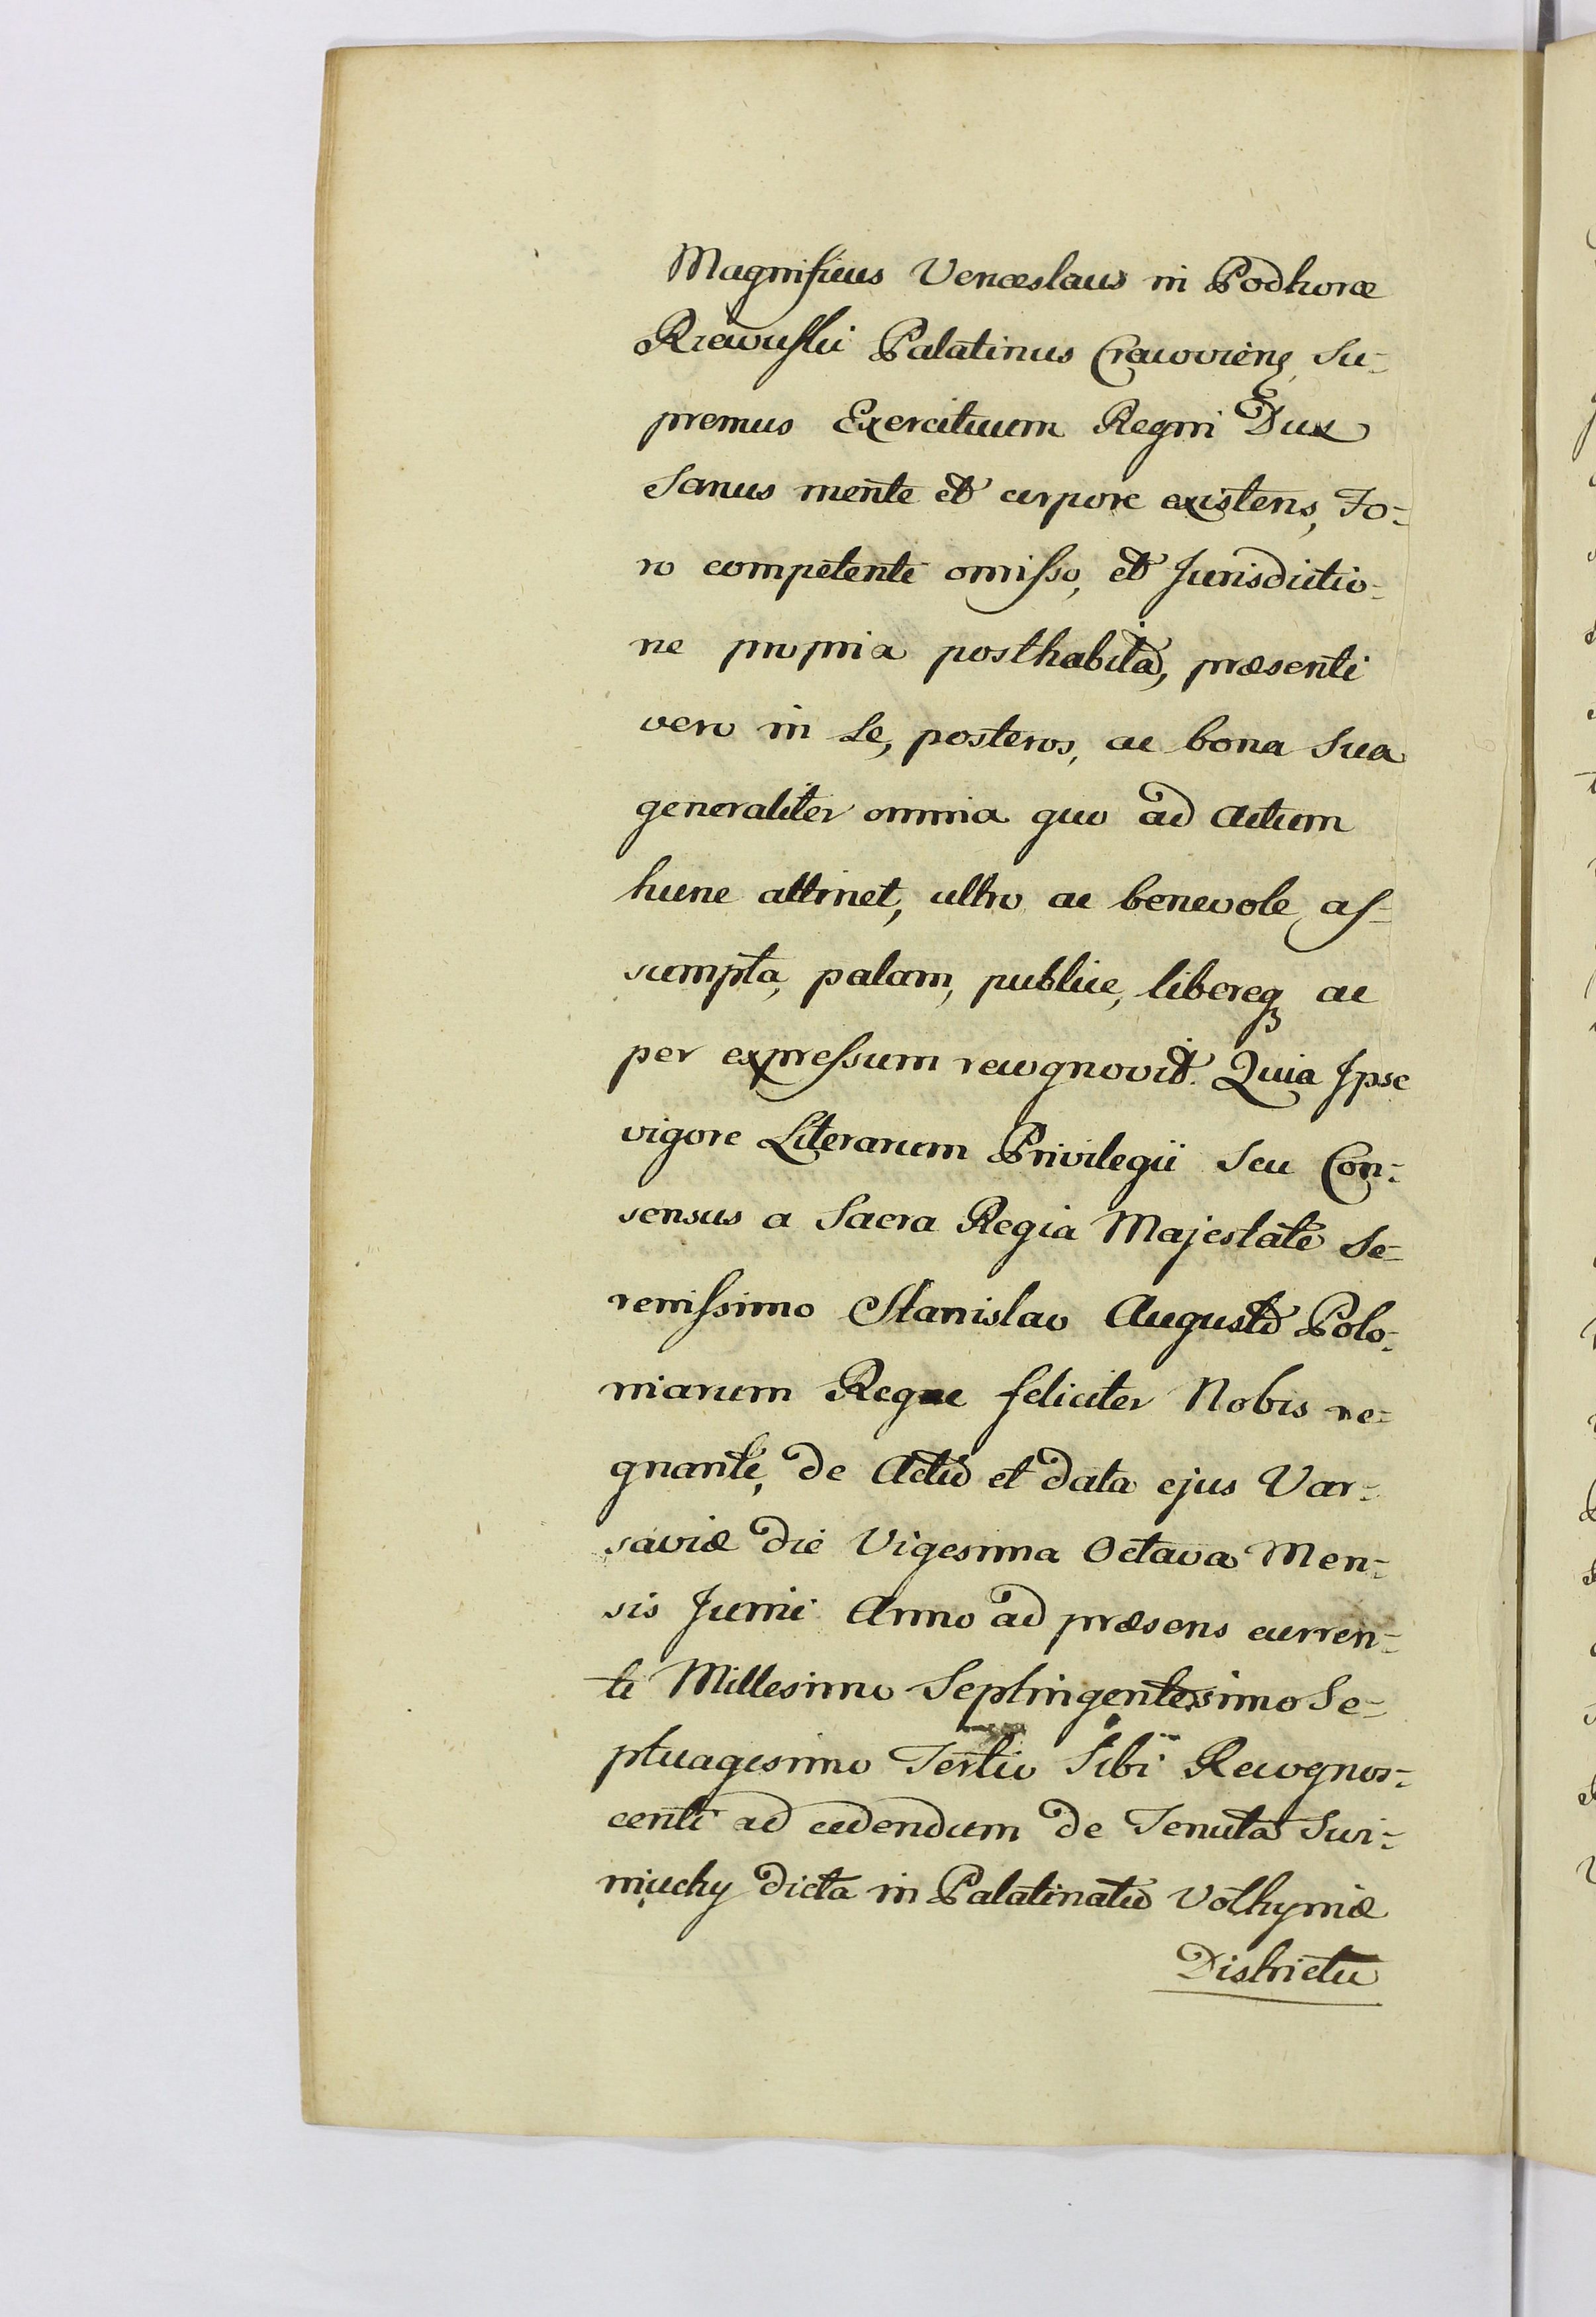 Magnificus Venceslaus in Podhorce
Rzewuski Palatinus Cracoviens, Su-
premus Exercituum Regni Dux
Sanus mente et corpore existens, Fo-
ro competente omisso, et Jurisdictio-
ne propria posthabita, præsenti
vero in se, posteros, ac bona Sua
generaliter omnia quo ad Actum
hunc attinet, ultro ac benevole as-
sumpta, palam, publice, libereq ac
per expressum recognovit. Quia Ipse
vigore Literarum Privilegii Seu Con-
sensus a Sacra Regia Majestate Se-
renissimo Stanislao Augusto Polo-
niarum Rege feliciter Nobis re-
gnante, de Actu et data ejus Var-
saviæ die Vigesima Octava Men-
sis Junii Anno ad præsens curren-
ti Millesimo Septingentesimo Se-
ptuagesimo Tertio Sibi Recognos-
centi ad cedendum de Tenuta Swi-
niuchy dicta in Palatinatu Volhyniæ
Districtu